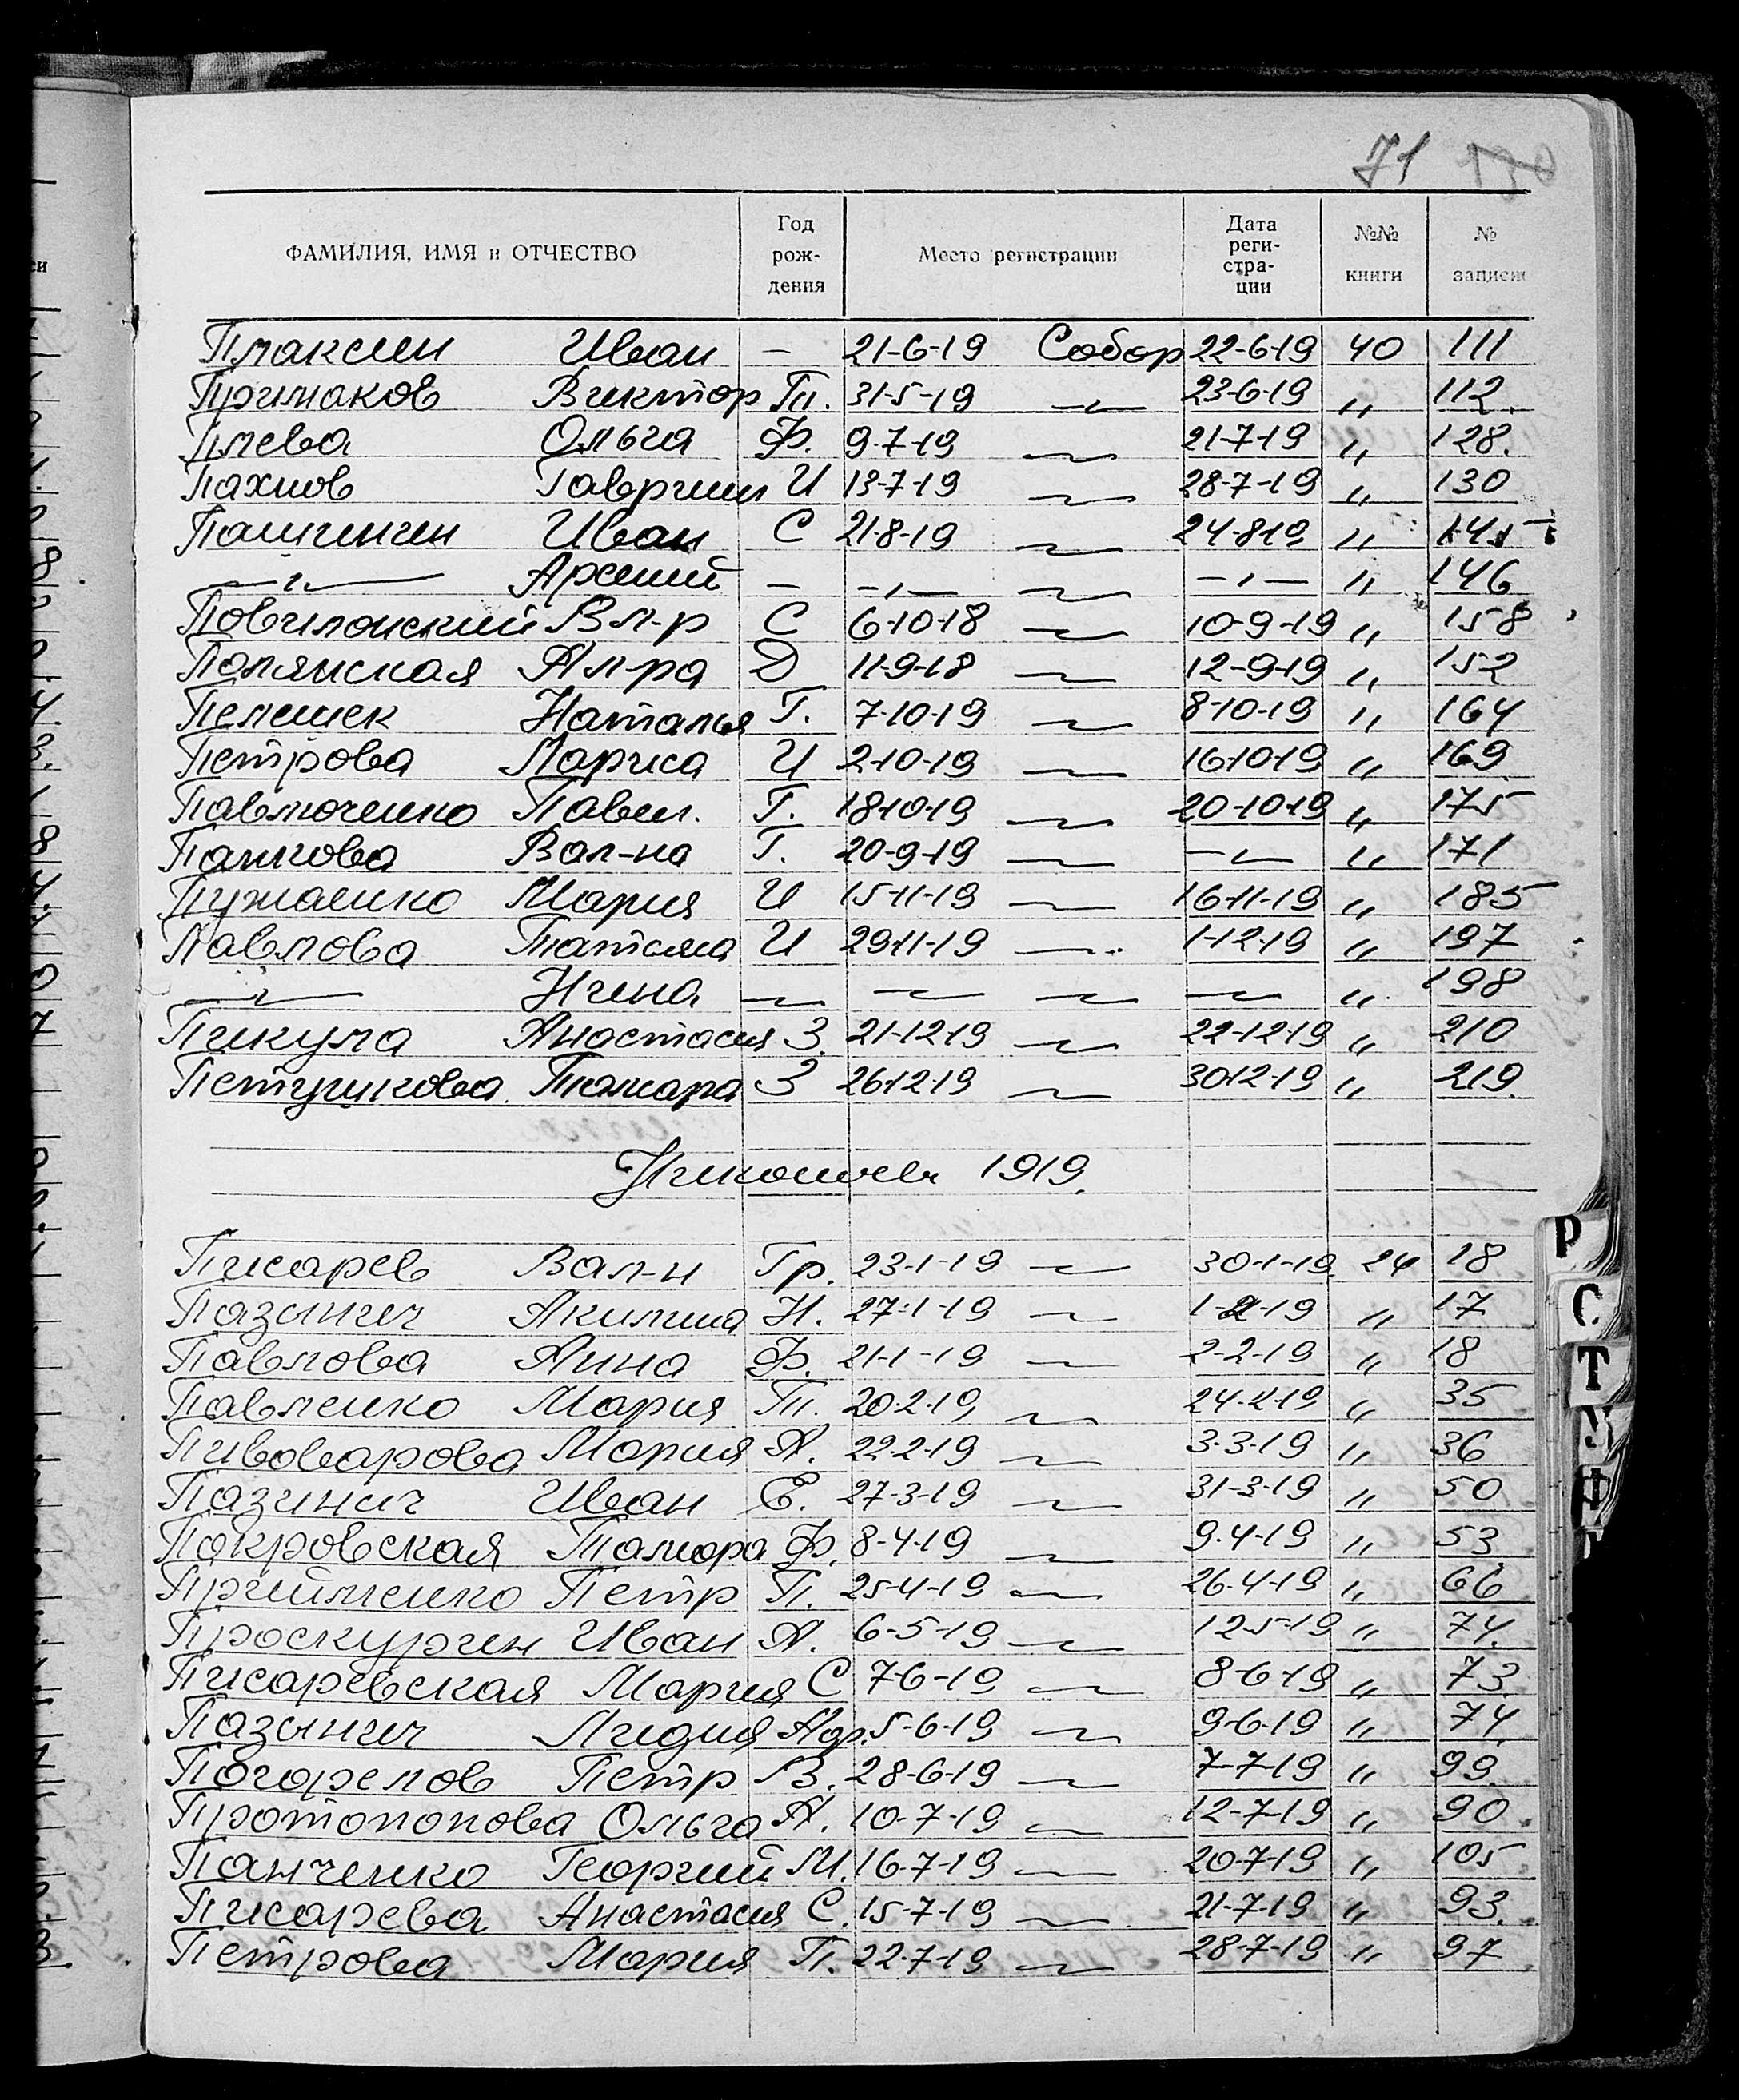 71
ФАМИЛИЯ, ИМЯ и ОТЧЕСТВО Год рождения Место регистрации Дата регистрации №№ книги № записи
Плаксин Иван – 21-6-19 Собор 22-6-19 40 111
Примаков Виктор Гп. 31-5-19 –〃– 23-6-19 〃 112.
Плева Ольга Ф. 9-7-19 –〃– 21-7-19 〃 128.
Пахнов Гавриил И 13-7-19 –〃– 28-7-19 〃 130
Иван С 21-8-19 –〃– 24-8-19 〃 145
–〃– Арсений – –〃– –〃– –〃– 〃 146
Повилонский Вл-р С 6-10-18 –〃– 10-9-19 〃 158
Полянская Ал-ра Д 11-9-18 –〃– 12-9-19 〃 152
Пелешек Наталья Г. 7-10-19 –〃– 8-10-19 〃 164
Петрова Лариса И 2-10-19 –〃– 16-10-19 〃 169
Павлюченко Павел. Г. 18-10-19 –〃– 20-10-19 〃 175
Панкова Вал-на Г. 20-9-19 –〃– –〃– 〃 171
Пужаенко Мария И 15-11-19 –〃– 16-11-19 〃 185
Павлова Татьяна И 29-11-19 –〃– 1-12-19 〃 197
–〃– Нина –〃– –〃– –〃– –〃– 〃 198
Пикула Анастасия З. 21-12-19 –〃– 22-12-19 〃 210
Петушкова Тамара З 26-12-19 –〃– 30-12-19 〃 219.
1919.
Писарев Вал-н Гр. 23-1-19 –〃– 30-1-19. 24 18
Пазынич Акилина Н. 27-1-19 –〃– 1-2-19 〃 17
Павлова Анна Ф. 21-1-19 –〃– 2-2-19 〃 18
Павленко Мария Гп. 20-2-19 –〃– 24-2-19 〃 35
Пивоварова Мария А. 22-2-19 –〃– 3-3-19 〃 36
Пазинич Иван Е. 27-3-19 –〃– 31-3-19 〃 50
Покровская Тамара Ф. 8-4-19 –〃– 9-4-19 〃 53
Прийменко Петр П. 25-4-19 –〃– 26-4-19 〃 66
Проскурин Иван А. 6-5-19 –〃– 12-5-19 〃 74.
Писаревская Мария С 7-6-19 –〃– 8-6-19 〃 73
Пазынич Лидия Адр. 5-6-19 –〃– 9-6-19 〃 74
Погорелов Петр В. 28-6-19 –〃– 7-7-19 〃 99.
Протопопова Ольга А. 10-7-19 –〃– 12-7-19 〃 90.
Панченко Георгий М. 16-7-19 –〃– 20-7-19 〃 105
Писарева Анастасия С. 15-7-19 –〃– 21-7-19 〃 93.
Петрова Мария П. 22-7-19 –〃– 28-7-19 〃 97
Р
С
Т
У
Ф